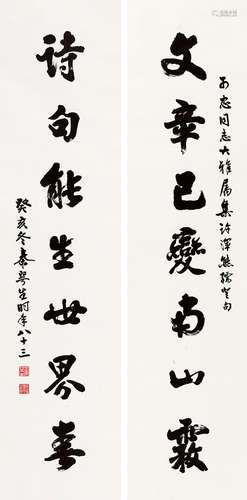 文章已變南山霧
詩句能生世界春
同志大雅屬集許渾熊孺登句
癸亥冬秦咢生時年八十三